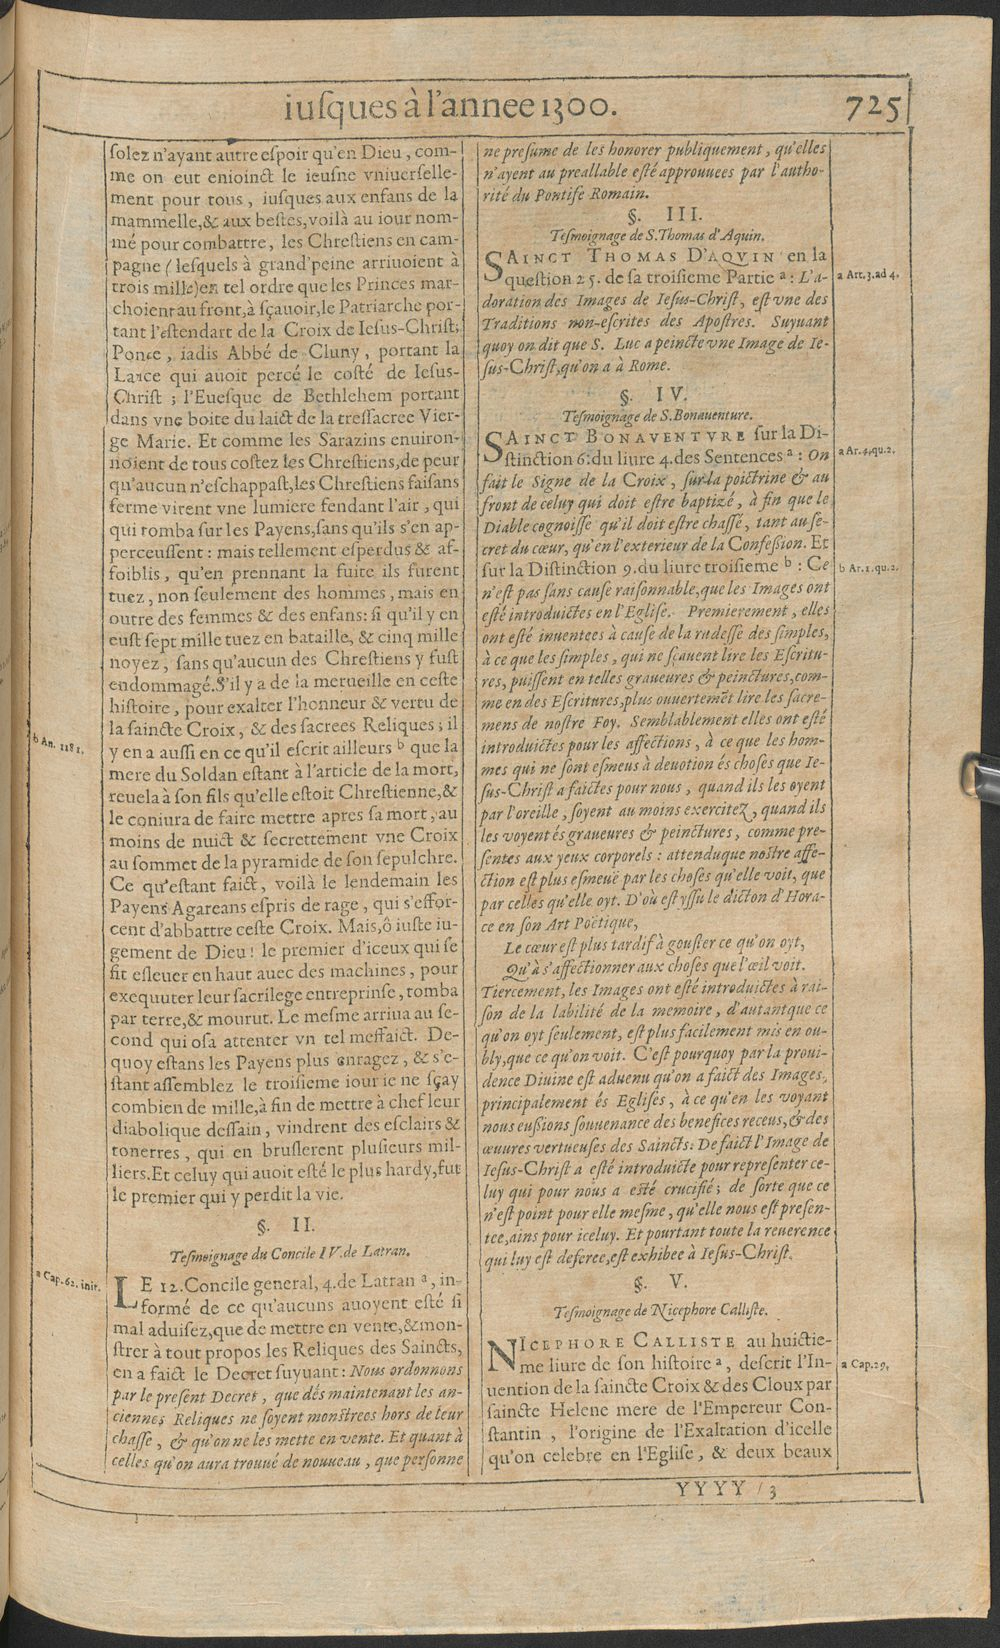 iusques à l'annee 1300. 725
solez n'ayant autre espoir qu'en Dieu, com-
me on eut enioinct le ieusne vniuerselle-
ment pour tous, iusques aux enfans de la
mammelle,& aux bestes,voilà au iour nom-
mé pour combattre, les Chrestiens en cam-
pagne (lesquels à grand'peine arriuoient à
trois mille)en tel ordre que les Princes mar-
choient au front,à sçauoir,le Patriarche por-
tant l'estendart de la Croix de Iesus-Christ;
Ponce, iadis Abbé de Cluny, portant la
Lance qui auoit percé le costé de Iesus-
Christ; l'Euesque de Bethlehem portant
dans vne boite du laict de la tressacree Vier-
ge Marie. Et comme les Sarazins enuiron-
noient de tous costez les Chrestiens,de peur
qu'aucun n'eschappast,les Chrestiens faisans
ferme virent vne lumiere fendant l'air, qui
qui tomba sur les Payens,sans qu'ils s'en ap-
perceussent: mais tellement esperdus & af-
foiblis, qu'en prennant la fuite ils furent
tuez, non seulement des hommes, mais en
outre des femmes & des enfans: si qu'il y en
eust sept mille tuez en bataille, & cinq mille
noyez, sans qu'aucun des Chrestiens y fust
endommagé.S'il y a de la merueille en ceste
histoire, pour exalter l'honneur & vertu de
la saincte Croix, & des sacrees Reliques; il
y en a aussi en ce qu'il escrit ailleurs b que la
b An. 1181.
mere du Soldan estant à l'article de la mort,
reuela à son fils qu'elle estoit Chrestienne,&
le coniura de faire mettre apres sa mort, au
moins de nuict & secrettement vne Croix
au sommet de la pyramide de son sepulchre.
Ce qu'estant faict, voilà le lendemain les
Payens Agareans espris de rage, qui s'effor-
cent d'abbattre ceste Croix. Mais,ô iuste iu-
gement de Dieu! le premier d'iceux qui se
fit esleuer en haut auec des machines, pour
exequuter leur sacrilege entreprinse, tomba
par terre,& mourut. Le mesme arriua au se-
cond qui osa attenter vn tel meffaict. De-
quoy estans les Payens plus enragez, & s'e-
stant assemblez le troisieme iour ie ne sçay
combien de mille,à fin de mettre à chef leur
diabolique dessain, vindrent des esclairs &
tonerres, qui en bruslerent plusieurs mil-
liers.Et celuy qui auoit esté le plus hardy,fut
le premier qui y perdit la vie.
§. II.
Tesmoignage du Concile IV. de Latran.
a Cap. 62. init.
LE 12.Concile general, 4.de Latran a, in-
formé de ce qu'aucuns auoyent esté si
mal aduisez,que de mettre en vente,& mon-
strer à tout propos les Reliques des Saincts,
en a faict le Decret suyuant: Nous ordonnons
par le present Decret, que dés maintenant les an-
ciennes Reliques ne soyent monstrees hors de leur
chasse, & qu'on ne les mette en vente. Et quant à
celles qu'on aura trouué de nouueau, que personne
ne presume de les honorer publiquement, qu'elles
n'ayent au preallable esté approuuees par l'autho-
rité du Pontife Romain.
§. III.
Tesmoignage de S.Thomas d'Aquin.
SAINCT THOMAS D'AQVIN en la
question 25. de sa troisieme Partie a: L'a-
a Art.3.ad 4.
doration des Images de Iesus-Christ, est vne des
Traditions non-escrites des Apostres. Suyuant
quoy on dit que S. Luc a peincte vne Image de Ie-
sus-Christ,qu'on a à Rome.
§. IV.
Tesmoignage de S.Bonauenture.
SAINCT BONAVENTVRE sur la Di-
stinction 6.du liure 4.des Sentences a: On
a Ar.4.qu.2.
fait le Signe de la Croix, sur la poictrine & au
front de celuy qui doit estre baptizé, à fin que le
Diable cognoisse qu'il doit estre chassé, tant au se-
cret du cœur, qu'en l'exterieur de la Confession. Et
sur la Distinction 9.du liure troisieme b: Ce
b Ar.1.qu.2.
n'est pas sans cause raisonnable,que les Images ont
esté introduictes en l'Eglise. Premierement, elles
ont esté inuentees à cause de la rudesse des simples,
à ce que les simples, qui ne sçauent lire les Escritu-
res, puissent en telles graueures & peinctures,com-
me en des Escritures,plus ouuertemēt lire les sacre-
mens de nostre Foy. Semblablement elles ont esté
introduictes pour les affections, à ce que les hom-
mes qui ne sont esmeus à deuotion és choses que Ie-
sus-Christ a faictes pour nous, quand ils les oyent
par l'oreille, soyent au moins exercitez, quand ils
les voyent és graueures & peinctures, comme pre-
sentes aux yeux corporels: attenduque nostre affe-
ction est plus esmeuë par les choses qu'elle voit, que
par celles qu'elle oyt. D'où est yssu le dicton d'Hora-
ce en son Art Poëtique,
Le cœur est plus tardif à gouster ce qu'on oyt,
Qu'à s'affectionner aux choses que l'œil voit.
Tiercement, les Images ont esté introduictes à rai-
son de la labilité de la memoire, d'autant que ce
qu'on oyt seulement, est plus facilement mis en ou-
bly,que ce qu'on voit. C'est pourquoy par la proui-
dence Diuine est aduenu qu'on a faict des Images,
principalement és Eglises, à ce qu'en les voyant
nous eussions souuenance des benefices receus,& des
œuures vertueuses des Saincts: De faict l'Image de
Iesus-Christ a esté introduicte pour representer ce-
luy qui pour nous a esté crucifié; de sorte que ce
n'est point pour elle mesme, qu'elle nous est presen-
tee,ains pour iceluy. Et pourtant toute la reuerence
qui luy est deferee,est exhibee à Iesus-Christ.
§. V.
Tesmoignage de Nicephore Calliste.
NICEPHORE CALLISTE au huictie-
me liure de son histoire a, descrit l'In-
a Cap.29.
uention de la saincte Croix & des Cloux par
saincte Helene mere de l'Empereur Con-
stantin, l'origine de l'Exaltation d'icelle
qu'on celebre en l'Eglise, & deux beaux
YYYY 3